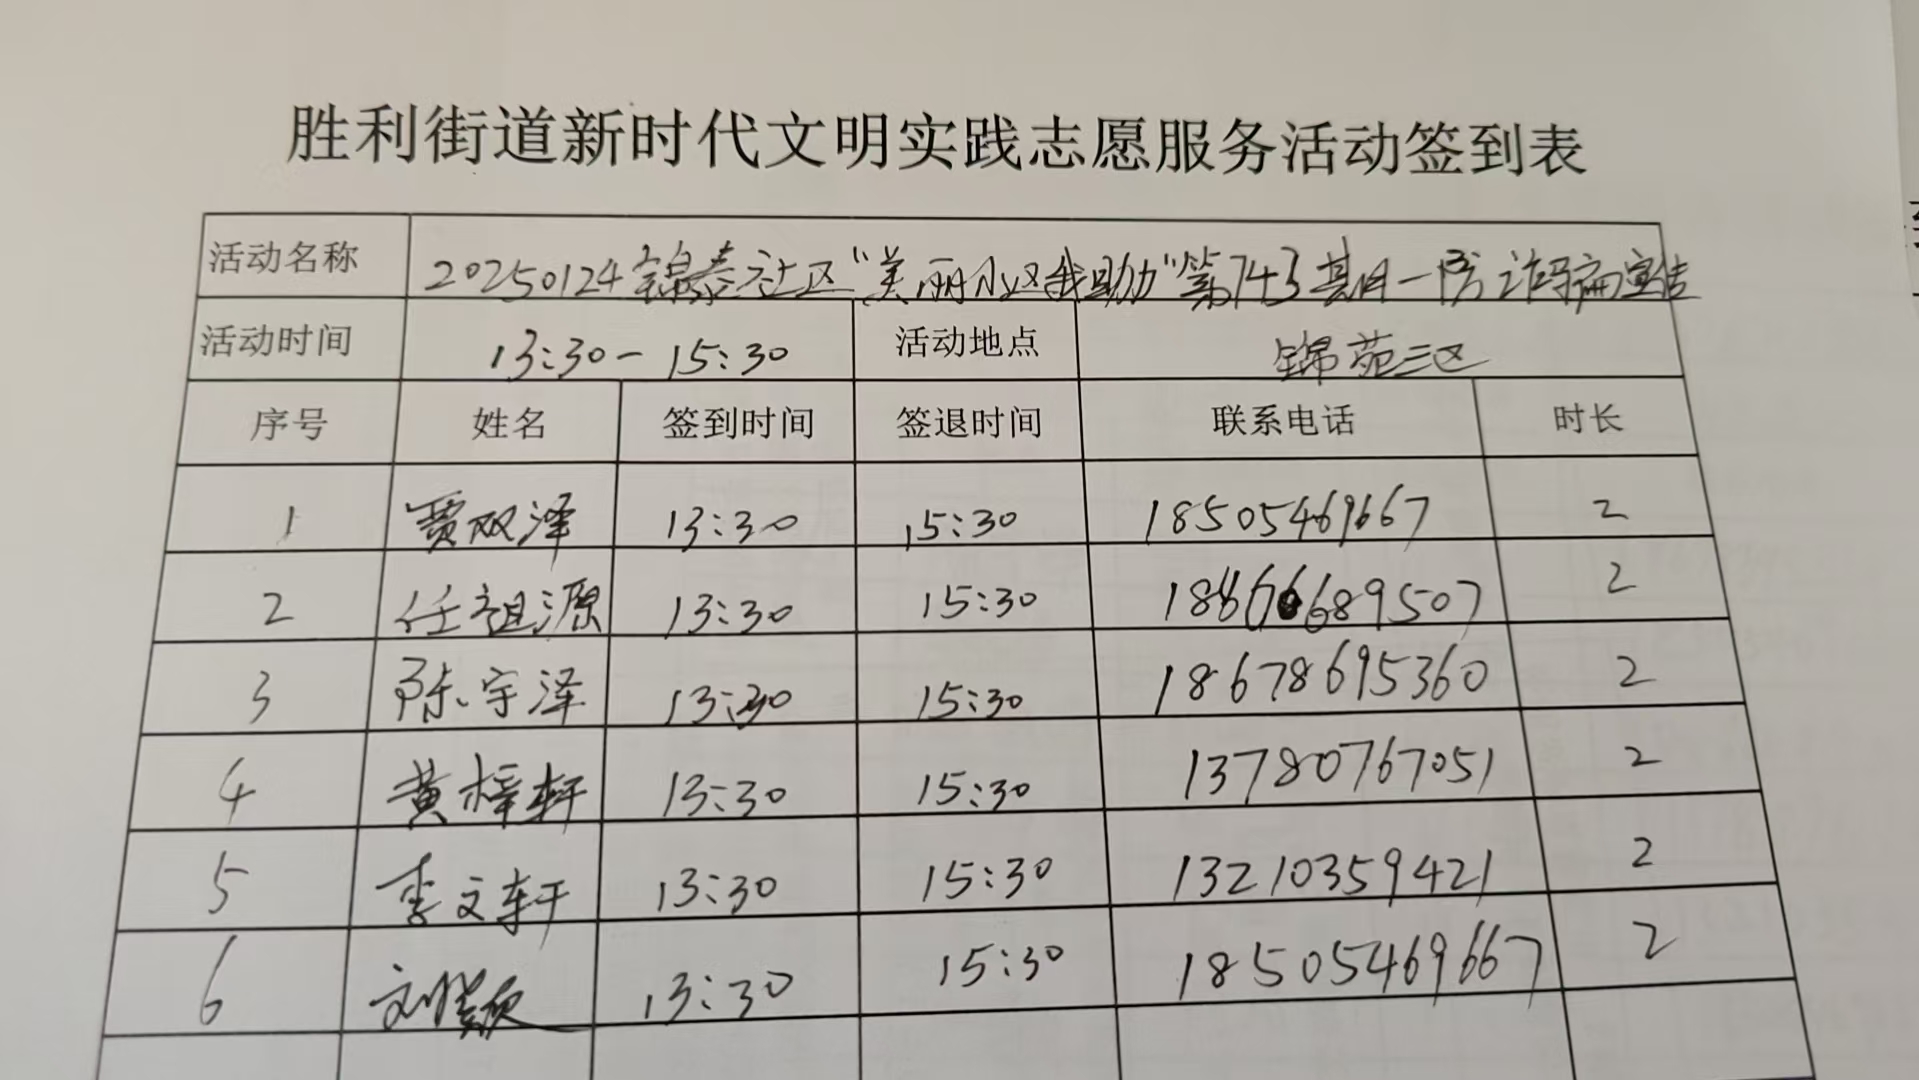 胜利街道新时代文明实践志愿服务活动签到表
活动名称 20250124锦泰社区“美丽小区我助力”第743期—防诈骗宣传
活动时间 13:30-15:30 活动地点 锦苑三区
序号 姓名 签到时间 签退时间 联系电话 时长
1 贾双泽 13:30 15:30 18505469667 2
2 任祖源 13:30 15:30 2
3 陈宇泽 13:30 15:30 18678695360 2
4 黄梓轩 13:30 15:30 13780767051 2
5 李文轩 13:30 15:30 13210359421 2
6 13:30 15:30 18505469667 2